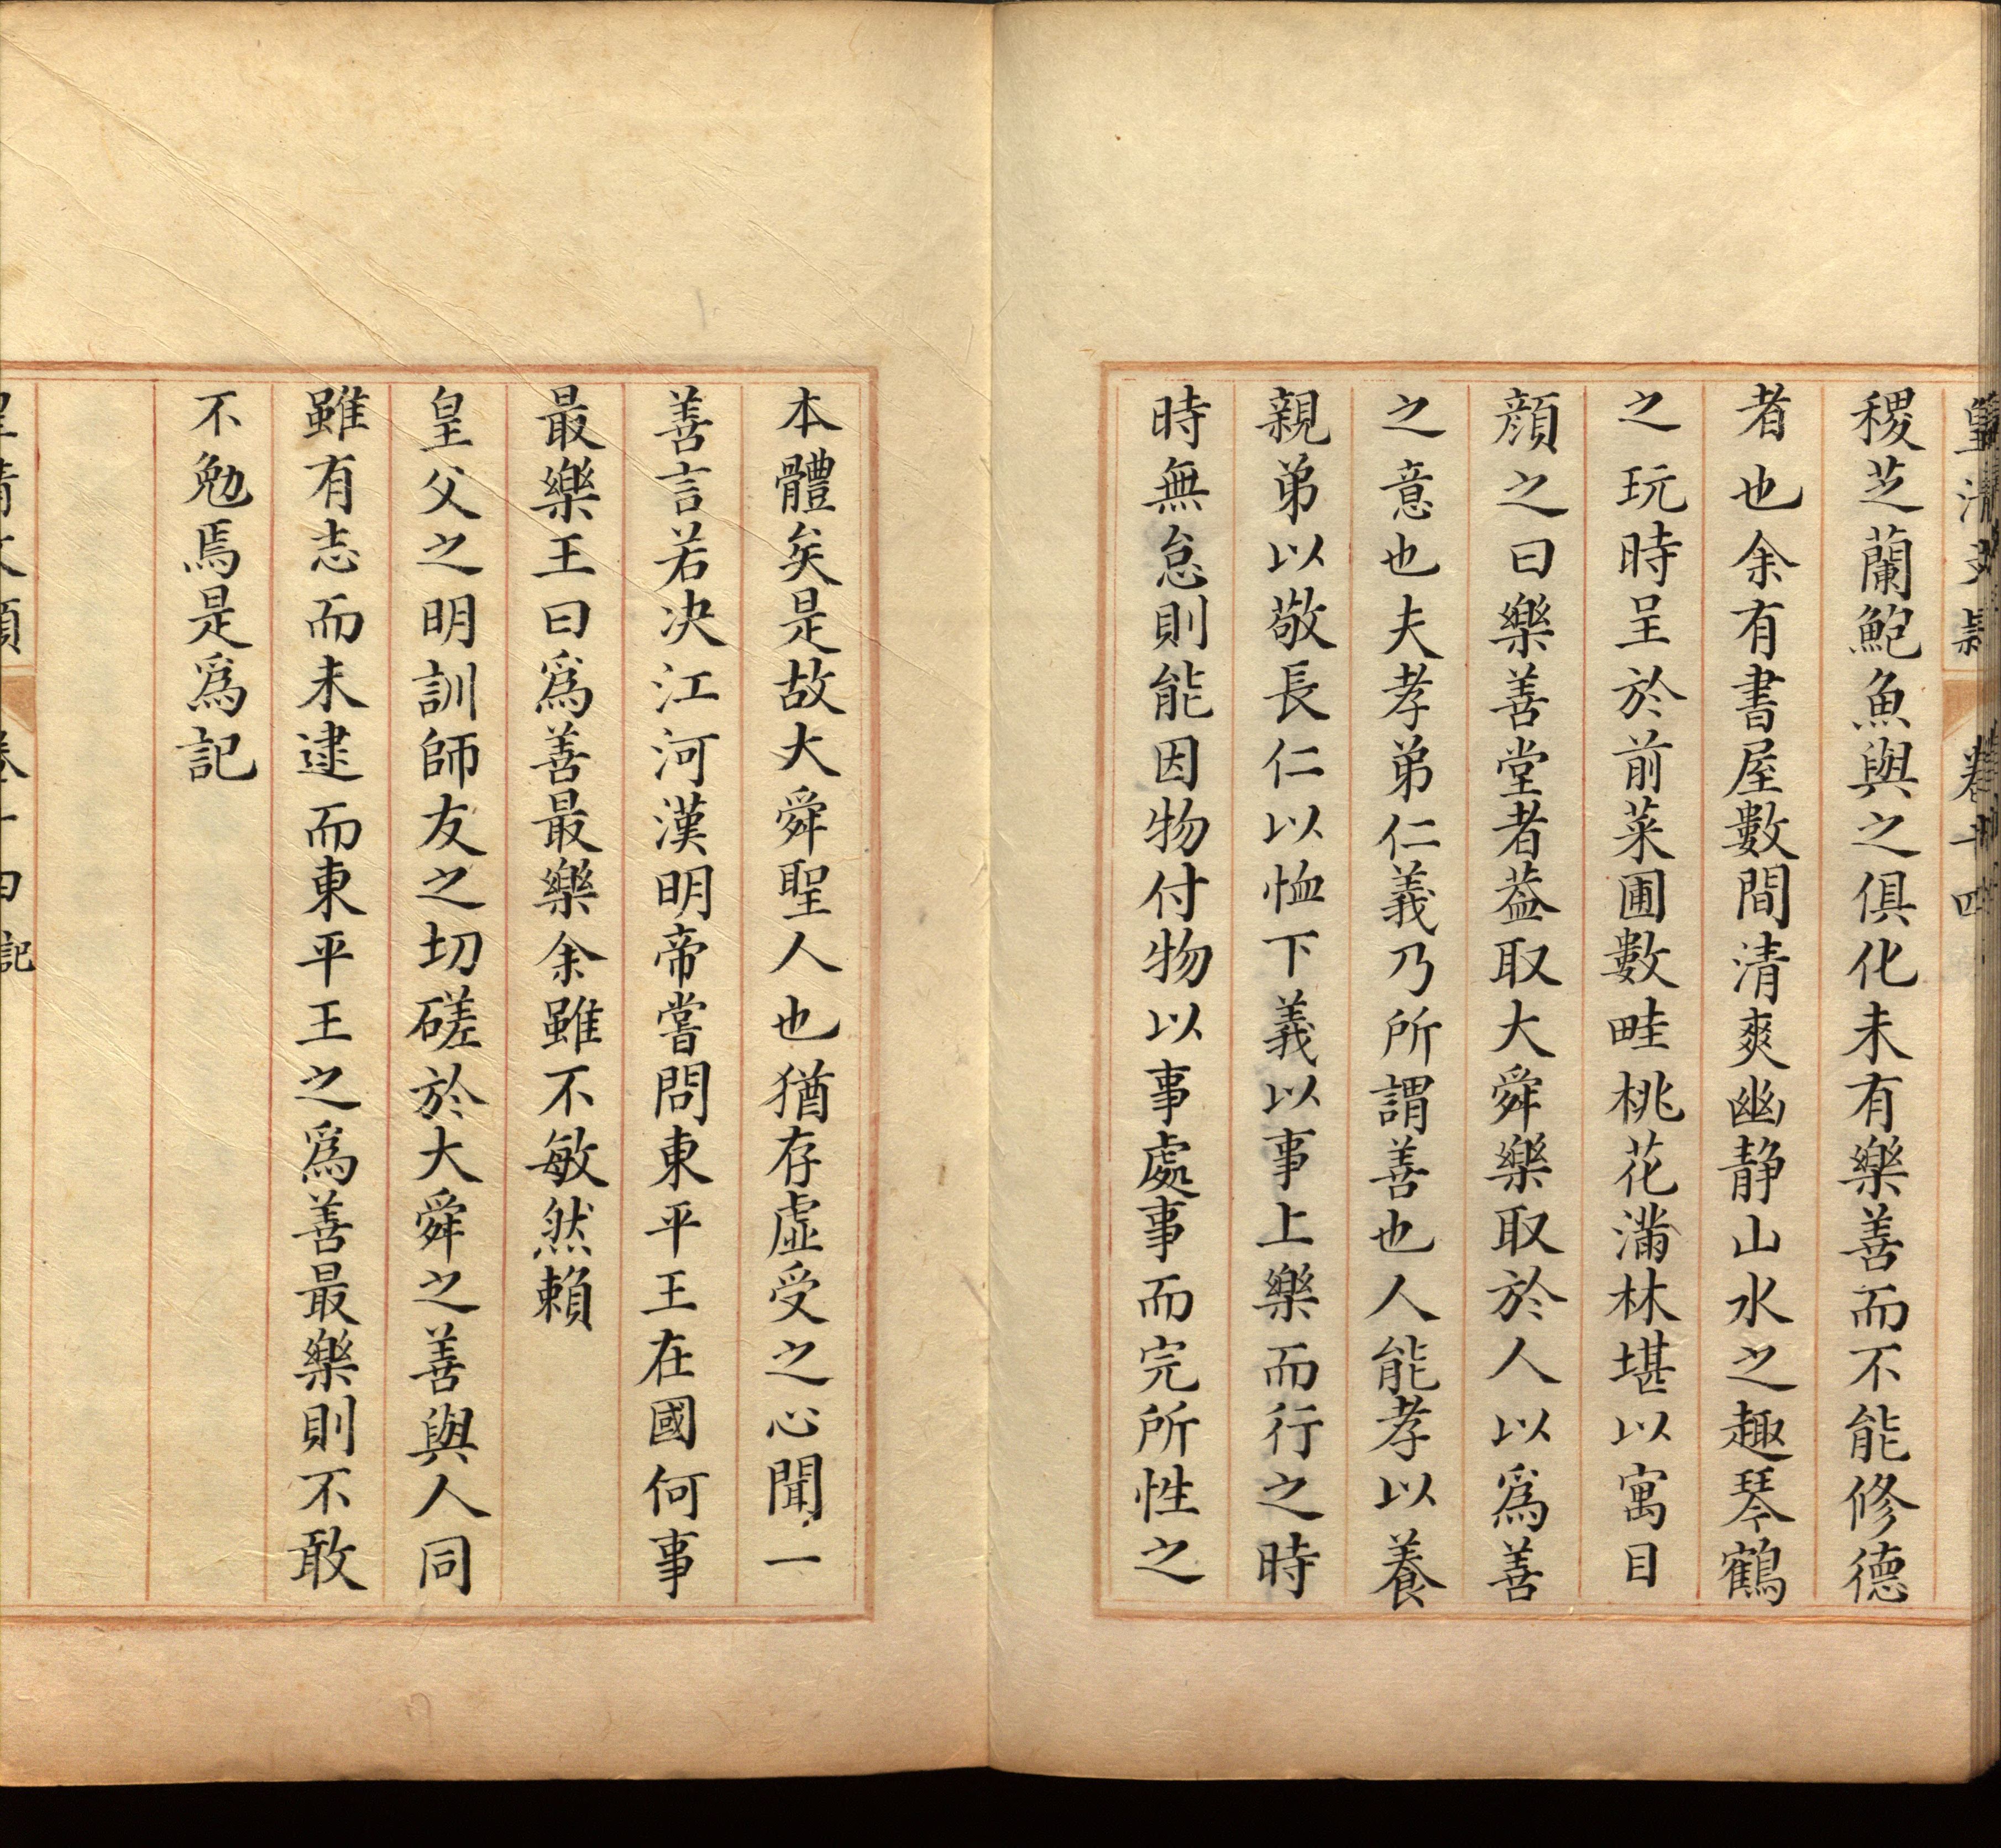 皇清文穎 卷十四
稷芝蘭鮑魚與之俱化未有樂善而不能修德
者也余有書屋數間清爽幽静山水之趣琴鶴
之玩時呈於前菜圃數畦桃花滿林堪以寓目
顔之曰樂善堂者葢取大舜樂取於人以爲善
之意也夫孝弟仁義乃所謂善也人能孝以養
親弟以敬長仁以恤下義以事上樂而行之時
時無怠則能因物付物以事處事而完所性之
本體矣是故大舜聖人也猶存虛受之心聞一
善言若决江河漢明帝嘗問東平王在國何事
最樂王曰爲善最樂余雖不敏然賴
皇父之明訓師友之切磋於大舜之善與人同
雖有志而未逮而東平王之爲善最樂則不敢
不勉焉是爲記
皇清文穎 卷十四 記